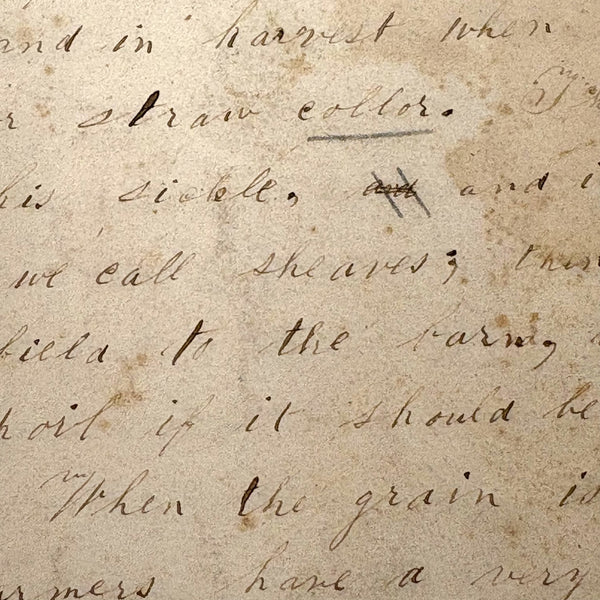 and in harvest when
r straw collor.
his sickle, and and i
we call sheaves;
field to the barn,
poil if it should be
When the grain is
armers have a very